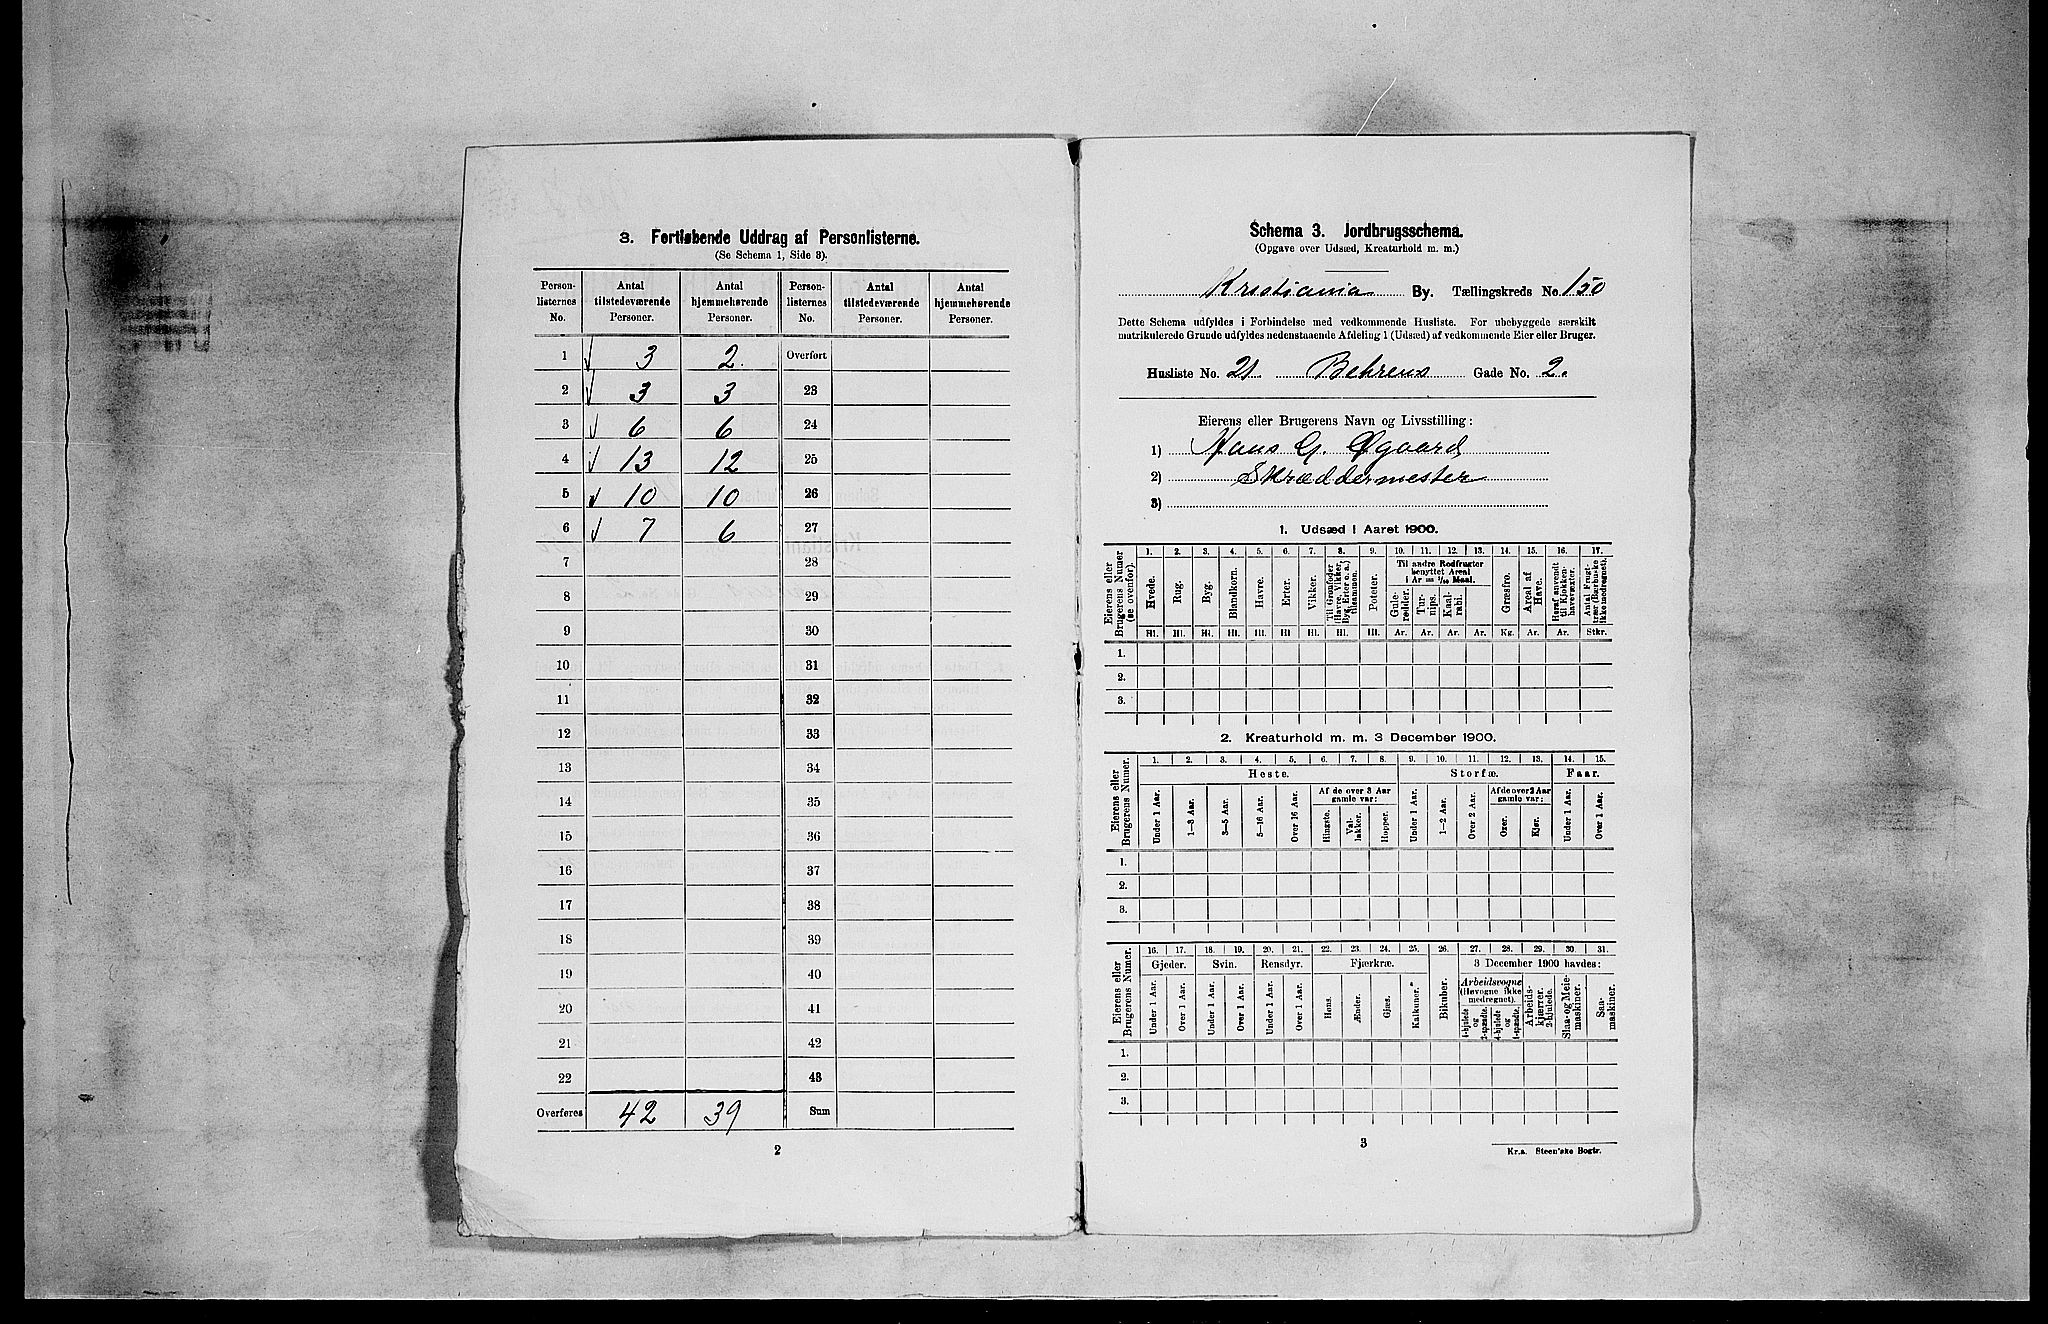 3. Fortløbende Uddrag af Personlisterne.
(Se Schema 1, Side 3).
Person-listernes No. | Antal tilstedeværende Personer. | Antal hjemmehørende Personer. | Person-listernes No. | Antal tilstedeværende Personer. | Antal hjemmehørende Personer.
1 √ 3 2. Overført
2 √ 3 3 23
3 √ 6 6 24
4 √ 13 12 25
5 √ 10 10 26
6 √ 7 6 27
7 28
8 29
9 30
10 31
11 32
12 33
13 34
14 35
15 36
16 37
17 38
18 39
19 40
20 41
21 42
22 43
Overføres 42 39 Sum
2
Schema 3. Jordbrugsschema.
(Opgave over Udsæd, Kreaturhold m. m.)
Kristiania By. Tællingskreds No. 150
Dette Schema udfyldes i Forbindelse med vedkommende Husliste. For ubebyggede særskilt
matrikulerede Grunde udfyldes nedenstaaende Afdeling 1 (Udsæd) af vedkommende Eier eller Bruger.
Husliste No. 21. Behrens Gade No. 2.
Eierens eller Brugerens Navn og Livsstilling:
1) Hans G. Øgaard
2) Skræddermester
3)
1. Udsæd i Aaret 1900.
Eierens eller Brugerens Numer (se ovenfor).
1. 2. 3. 4. 5. 6. 7. 8. 9. 10. 11. 12. 13. 14. 15. 16. 17.
Hvede. Rug. Byg. Blandkorn. Havre. Erter. Vikker. Til Grønfoder (Havre, Vikker, Byg, Erter o. a.) tilsammen. Poteter.
Til andre Rodfrugter
benyttet Areal
i Ar = 1/10 Maal.
Gule-rødder. Tur-nips. Kaal-rabi. Græsfrø. Areal af Have. Heraf anvendt til Kjøkken-havevæxter. Antal Frugt-trær (Bærbuske ikke medregnet).
Hl. Hl. Hl. Hl. Hl. Hl Hl. Hl. Hl. Ar. Ar. Ar. Ar. Kg. Ar. Ar. Stkr.
1.
2.
3.
2. Kreaturhold m. m. 3 December 1900.
Eierens eller Brugerens Numer.
1. 2. 3. 4. 5. 6. 7. 8. 9. 10. 11. 12. 13. 14. 15.
Heste. Storfæ. Faar.
Af de over 3 Aar gamle var: Af de over 2 Aar gamle var:
Under 1 Aar. 1—3 Aar. 3—5 Aar. 5—16 Aar. Over 16 Aar. Hingste. Val-lakker. Hopper. Under 1 Aar. 1—2 Aar. Over 2 Aar. Oxer. Kjør. Under 1 Aar. Over 1 Aar.
1.
2.
3.
Eierens eller Brugerens Numer.
16. 17. 18. 19. 20. 21. 22. 23. 24. 25. 26. 27. 28. 29. 30. 31.
Gjeder. Svin. Rensdyr. Fjærkræ. Bikuber. 3 December 1900 havdes:
Arbeidsvogne
(Høvogne ikke
medregnet).
Under 1 Aar. Over 1 Aar. Under 1 Aar. Over 1 Aar. Under 1 Aar. Over 1 Aar. Høns. Ænder. Gjæs. Kalkuner. 4-hjulede og 2-spændte. 4-hjulede og 1-spændte. Arbeids-kjærrer. 2-hjulede. Slaa- og Meie-maskiner. Saa-maskiner.
1.
2.
3.
3
Kr.a. Steen'ske Bogtr.